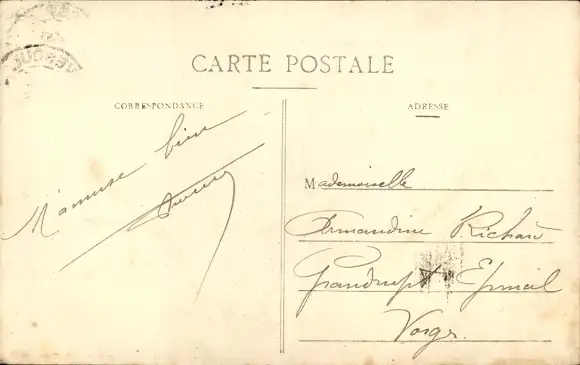 CARTE POSTALE
CORRESPONDANCE
ADRESSE
M'amuse bien
Mademoiselle
Armandine Richard
Grandrupt Epinal
Vosges